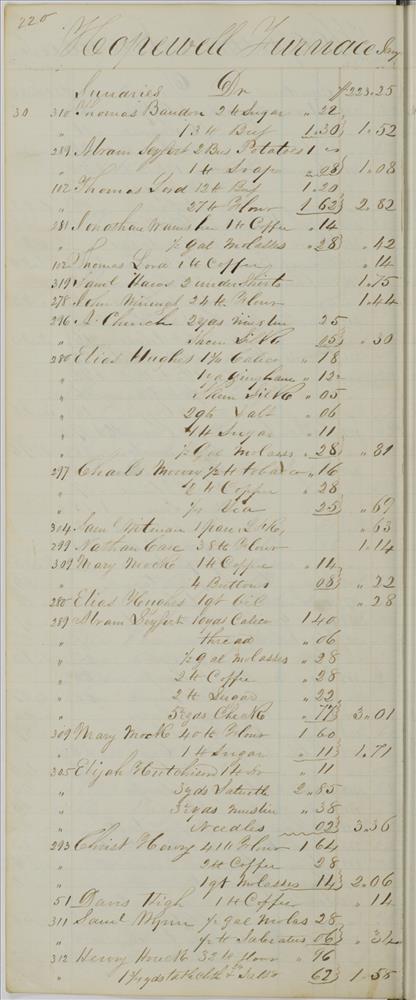 220
Hopewell Furnace Jany
Sundries Dr $223.25
30 310 Thomas Baudon 2 lb Sugar " 22
" 13 lb Beef 1.30 1.52
289 Abram Seyfert 2 Bus Potatoes 1 "
" 1 lb Soap " 08 1.08
112 Thomas Lord 12 lb Beef 1.20
" 27 lb Flour 1 62 2.82
281 Jonathan 1 lb Coffee " 14
" ½ gal Molasses " 28 " 42
112 Thomas Lord 1 lb Coffee " 14
319 Saml Hawes 2 under Shirts 1.75
278 John 24 lb Flour 1.44
296 A. Church 2 yds Muslin 25
" Skein Silk 05 " 30
280 Elias Hughes Calico " 18
" Gingham " 12
" Skein Silk " 05
" 2 qts Salt " 06
" 1 lb Sugar " 11
" ½ Gal Molasses " 28 " 81
297 Charles ½ lb tobacco " 16
" lb Coffee " 28
" Tea 25 " 69
304 Saml 1 pair " 63
299 Nathan Care 38 lb Flour 1.14
309 Mary Mock 1 lb Coffee " 14
" 4 Buttons 08 " 22
280 Elias Hughes 1 qt Oil " 28
289 Abram Seyfert 10 yds Calico 1 40
" thread " 06
" ½ gal Molasses " 28
" 2 lb Coffee " 28
" 2 lb Sugar " 22
" yds Check " 77 3.01
309 Mary Mock 40 lb Flour 1 60
" 1 lb Sugar " 11 1.71
305 Elijah 1 lb do " 11
" 3 yds 2.85
" yds Muslin " 38
" Needles 02 3.36
293 Christ Henry 41 lb Flour 1 64
" 2 lb Coffee 28
" 1 qt Molasses 14 2.06
51 Davis High 1 lb Coffee " 14
311 Saml Wynn ½ gal Molas 28
" ½ lb Salaratus 06 " 34
312 Henry Houck 32 lb flour " 96
" 62 1.58